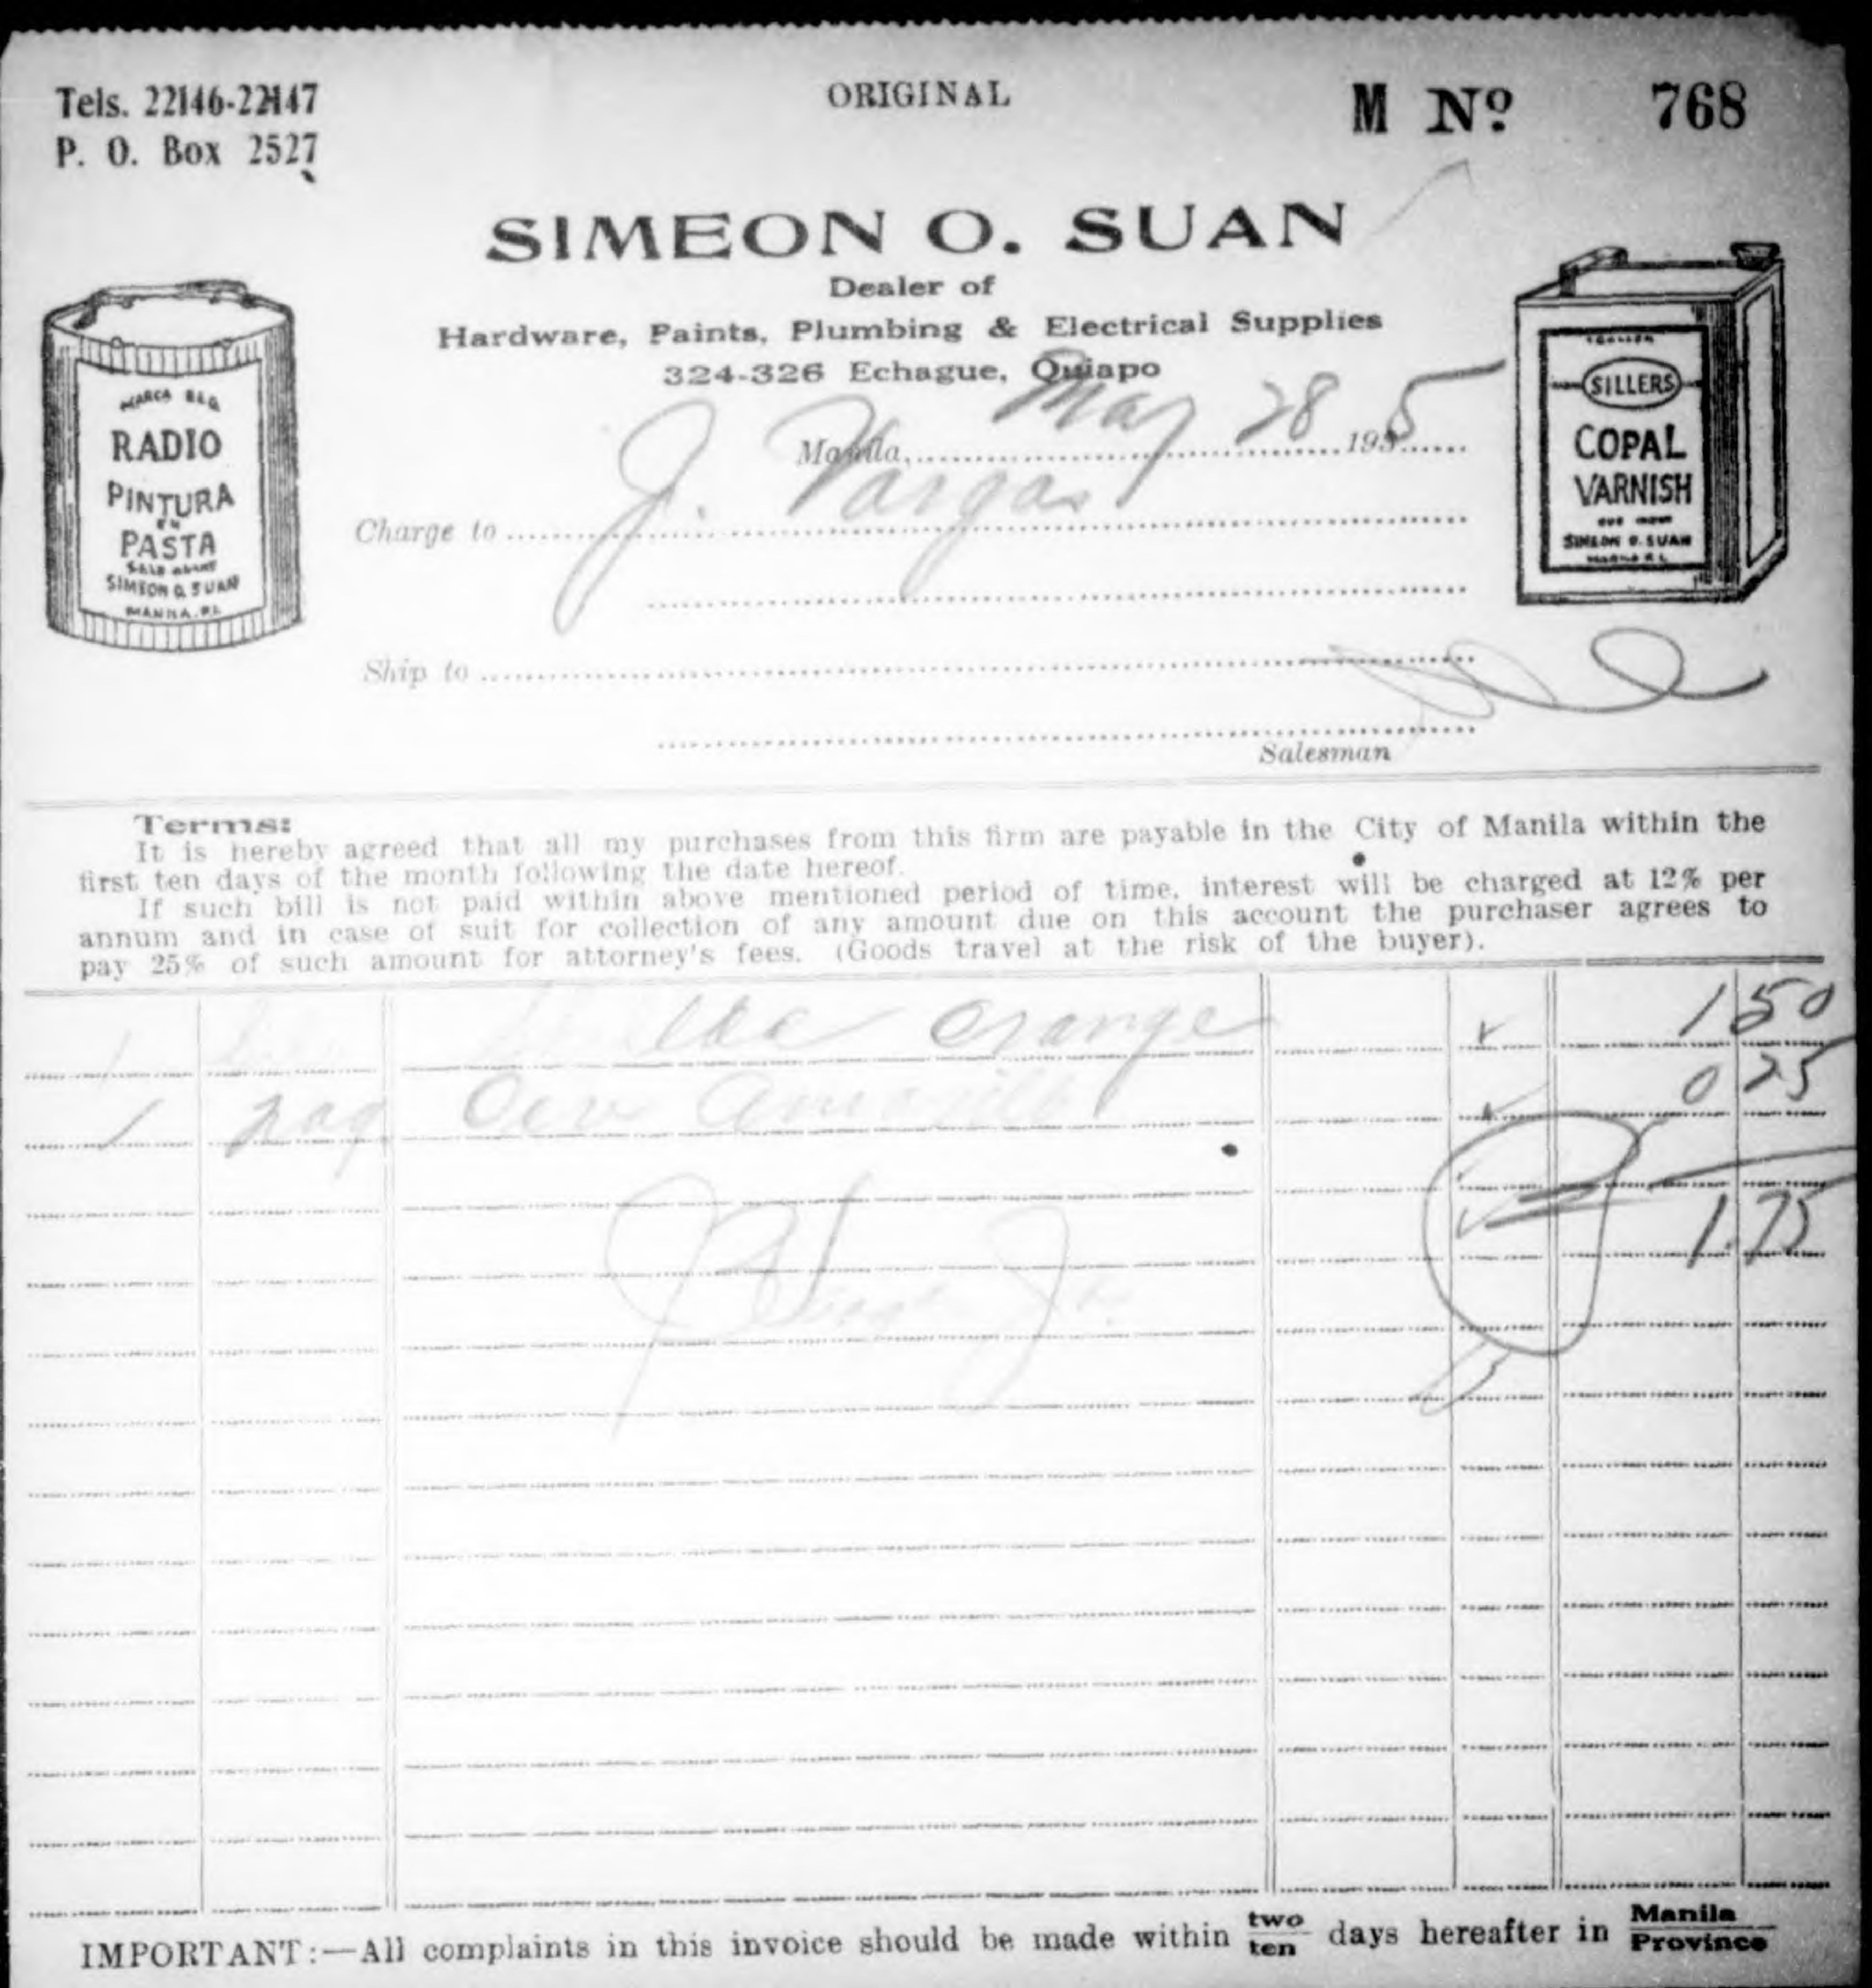 Tels. 22146-22147
P. O. Box 2527
ORIGINAL
M Nº 768
SIMEON O. SUAN
Dealer of
Hardware, Paints, Plumbing & Electrical Supplies
324-326 Echague, Quiapo
MARCA
RADIO
PINTURA
EN
PASTA
SIMEON O. SUAN
MANILA, P.I.
SILLERS
COPAL
VARNISH
SIMEON O. SUAN
MANILA P.I.
Manila, May 28 1935
Charge to J. Vargas
Ship to
Salesman
Terms:
It is hereby agreed that all my purchases from this firm are payable in the City of Manila within the
first ten days of the month following the date hereof.
If such bill is not paid within above mentioned period of time, interest will be charged at 12% per
annum and in case of suit for collection of any amount due on this account the purchaser agrees to
pay 25% of such amount for attorney's fees. (Goods travel at the risk of the buyer).
1 orange 1 50
1 paq 0 25
Jr.
1.75
IMPORTANT:—All complaints in this invoice should be made within two ten days hereafter in Manila Province